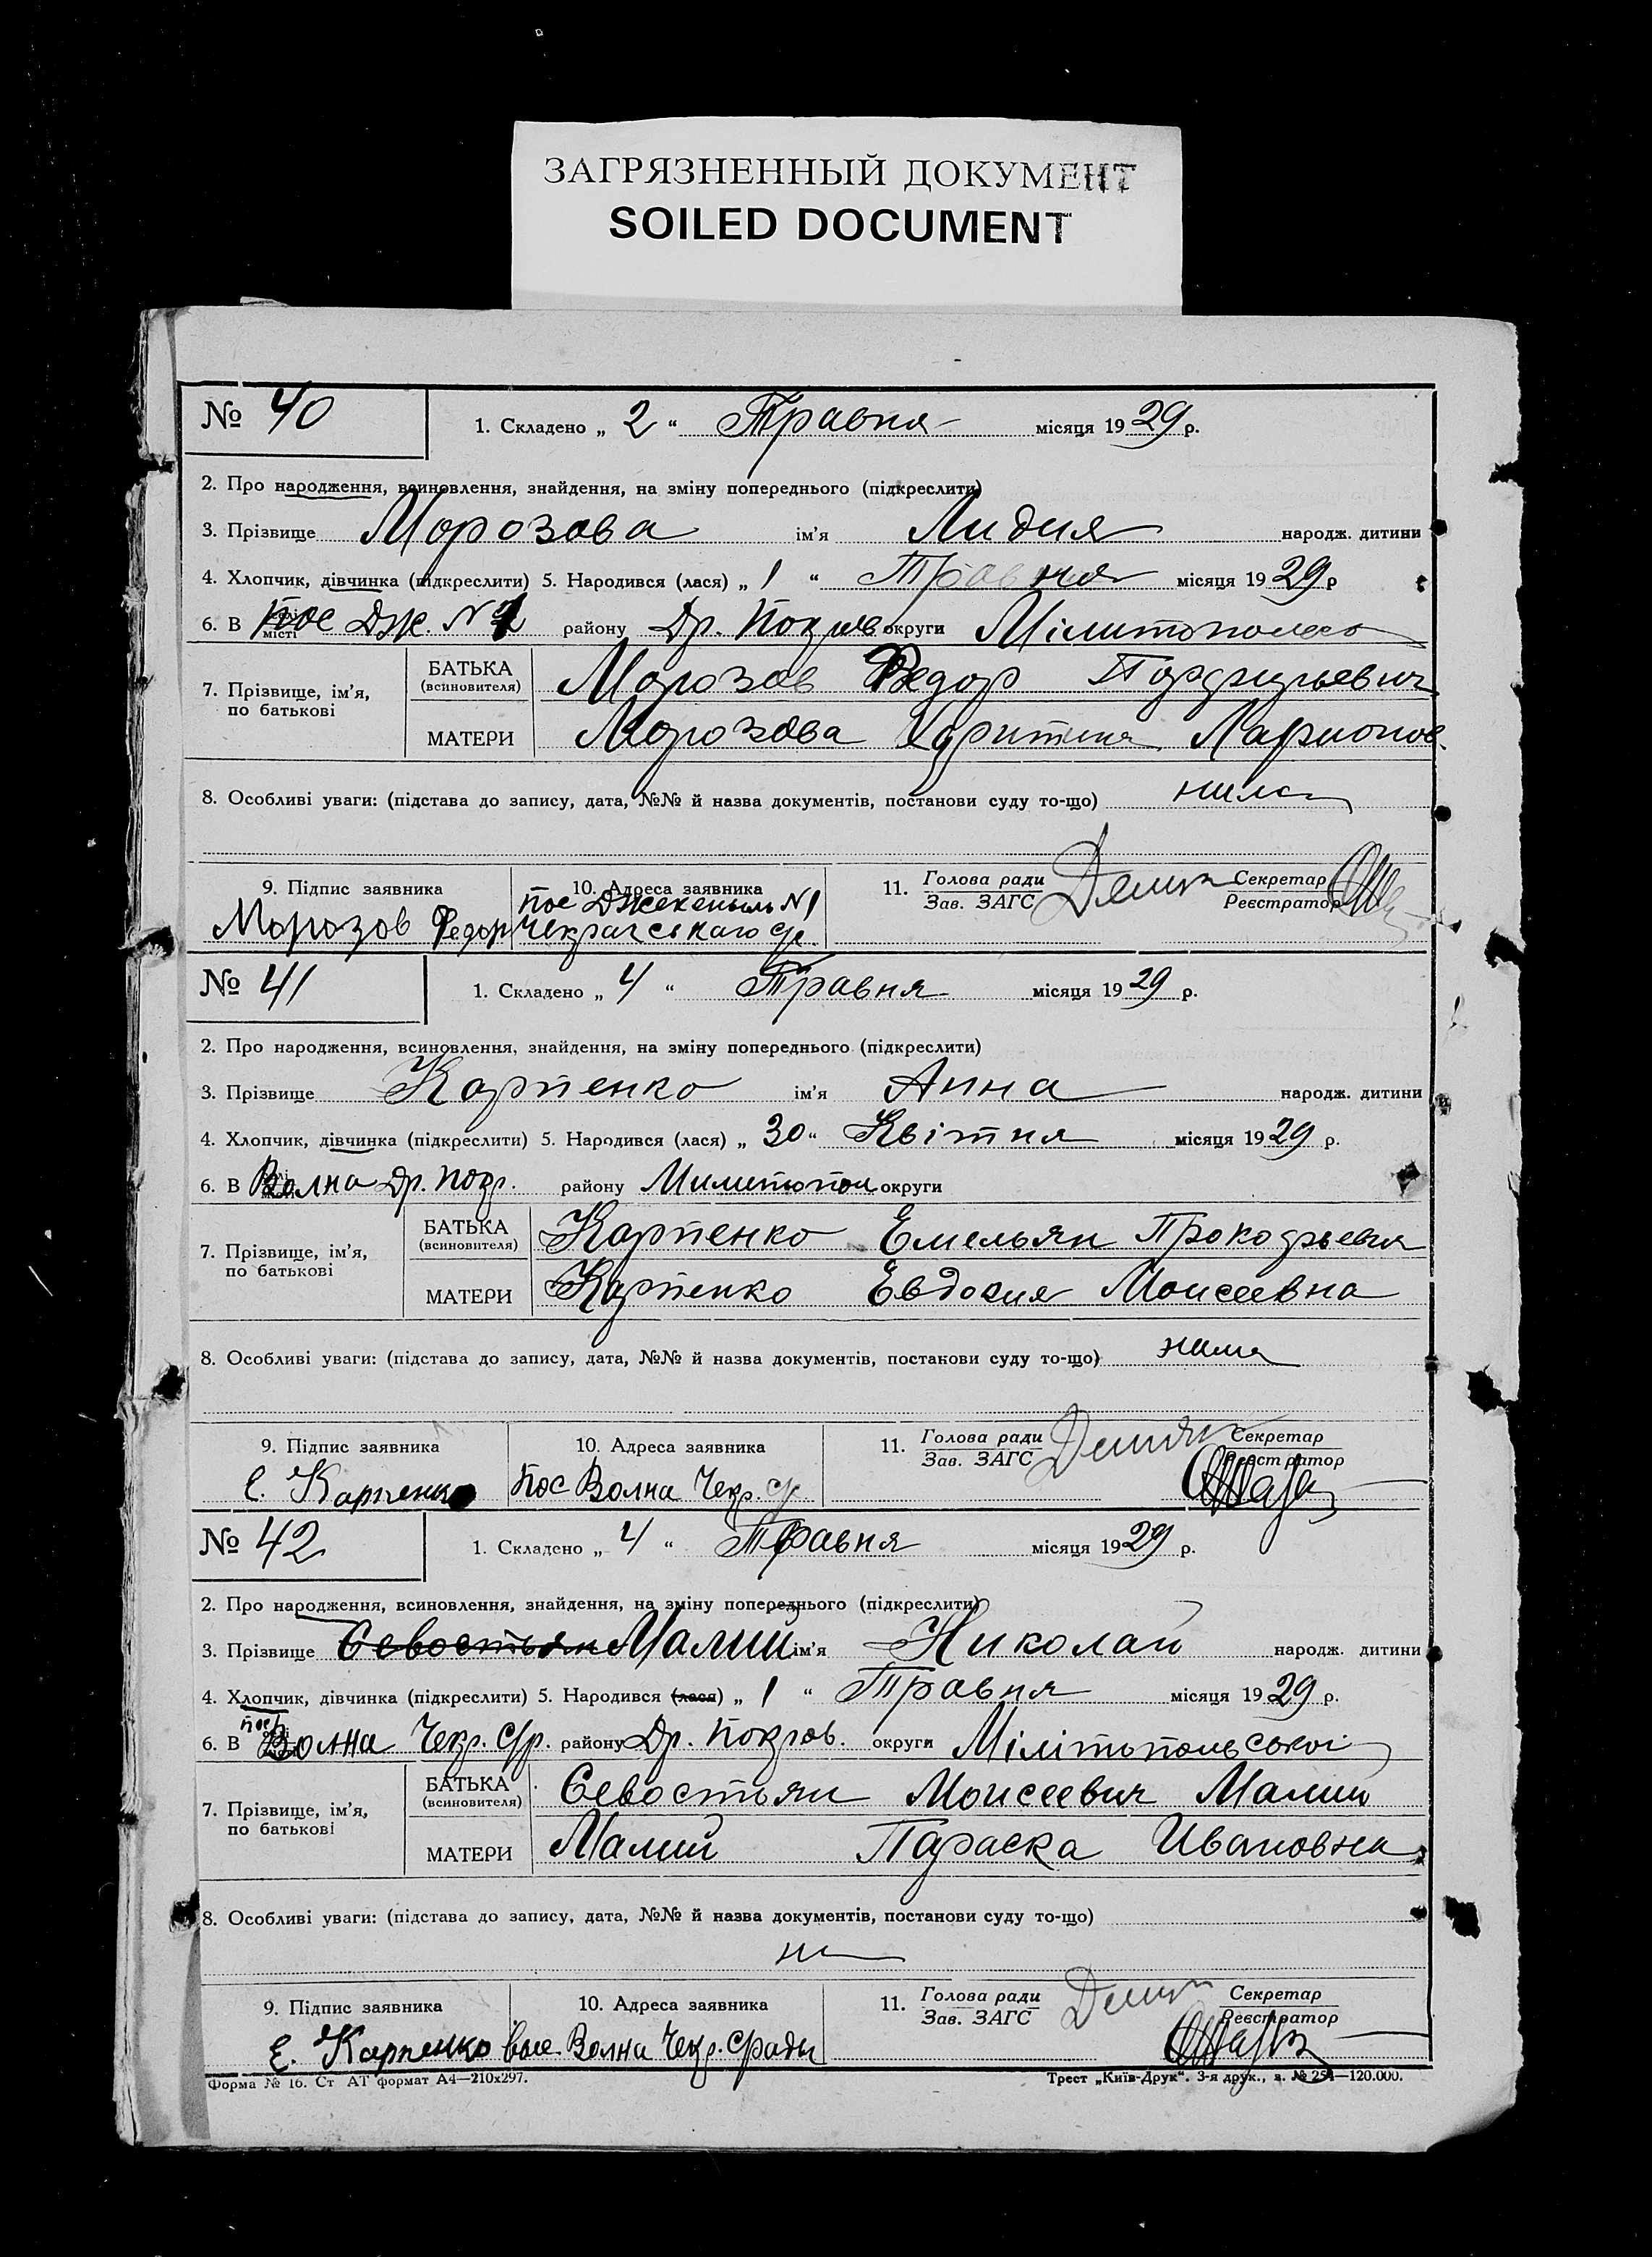 ЗАГРЯЗНЕННЫЙ ДОКУМЕНТ
SOILED DOCUMENT
№ 40
1. Складено „ 2 “ Травня місяця 1929 р.
2. Про народження, всиновлення, знайдення, на зміну попереднього (підкреслити)
3. Прізвище Морозова ім'я Лидия народж. дитини
4. Хлопчик, дівчинка (підкреслити) 5. Народився (лася) „ 1 “ Травня місяця 1929 р
6. В місті пос Дж. № району Др. Покров округи
7. Прізвище, ім'я, по батькові
БАТЬКА (всиновителя) Морозов Федор
МАТЕРИ Морозова Харитина Ларионов.
8. Особливі уваги: (підстава до запису, дата, №№ й назва документів, постанови суду то-що)
9. Підпис заявника
Морозов Федор
10. Адреса заявника
пос №1
с/р
11. Голова ради
Зав. ЗАГС
Секретар
Реєстратор
№ 41
1. Складено „ 4 “ Травня місяця 1929 р.
2. Про народження, всиновлення, знайдення, на зміну попереднього (підкреслити)
3. Прізвище Карпенко ім'я Анна народж. дитини
4. Хлопчик, дівчинка (підкреслити) 5. Народився (лася) „ 30 “ Квітня місяця 1929 р.
6. В Волна Др. Покр. району Милитопол округи
7. Прізвище, ім'я, по батькові
БАТЬКА (всиновителя) Карпенко Емельян Прокофьевич
МАТЕРИ Карпенко Евдокия Моисеевна
8. Особливі уваги: (підстава до запису, дата, №№ й назва документів, постанови суду то-що) нема
9. Підпис заявника
Е. Карпенко
10. Адреса заявника
Пос Волна Чекр. с/р
11. Голова ради
Зав. ЗАГС
Секретар
Реєстратор
№ 42
1. Складено „ 4 “ Травня місяця 1929 р.
2. Про народження, всиновлення, знайдення, на зміну попереднього (підкреслити)
3. Прізвище Севостьян Малий ім'я Николай народж. дитини
4. Хлопчик, дівчинка (підкреслити) 5. Народився (лася) „ 1 “ Травня місяця 1929 р.
6. В пос Волна Чекр. с/р. району Др. Покров. округи Мілітопольської
7. Прізвище, ім'я, по батькові
БАТЬКА (всиновителя) Севостьян Моисеевич Малий
МАТЕРИ Малий Параска Ивановна
8. Особливі уваги: (підстава до запису, дата, №№ й назва документів, постанови суду то-що)
9. Підпис заявника
Е. Карпенко
10. Адреса заявника
Волна Чекр. с/ради
11. Голова ради
Зав. ЗАГС
Секретар
Реєстратор
Форма № 16. Ст АТ формат А4—210x297.
Трест „Київ-Друк“. 3-я друк., з. № 254—120.000.